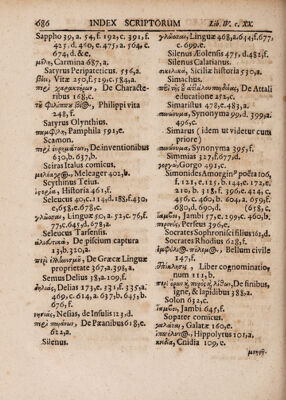 686 INDEX SCRIPTORUM Lib. IV. c. XX.
Sappho 39,a. 54,f. 192,c. 391,f.
425,d. 460,c. 475,a. 564,c.
674,d.&e.
μέλη, Carmina 687,a.
Satyrus Peripateticus. 556,a.
βίοι, Vitæ 250,f. 529,c. 584,a.
περὶ χαρακτήρων, De Characte-
ribus 168,c.
Φιλίππου βίος, Philippi vita
248,f.
Satyrus Olynthius.
Pamphila 591,e.
Scamon.
περὶ εὑρημάτων, De inventionibus
630,b. 637,b.
Scirai Italus comicus.
Meleager 402,b.
Scythinus Teius.
ἱστορία, Historia 461,f.
Seleucus 40,c. 114,d. 188,f. 430,
e. 658,e. 678,c.
γλῶσσαι, Linguæ 50,a. 52,c. 76,f.
77,c. 645,d. 658,a.
Seleucus Tarsensis.
ἁλιευτικά, De piscium captura
13,b. 320,a.
περὶ ἑλληνισμοῦ, De Græcæ Linguæ
proprietate 367,a. 398,a.
Semus Delius 38,a. 109,f.
Delias, Delias 173,e. 331,f. 335,a.
469,c. 614,a. 637,b. 645,b.
676,f.
Nesias, de Insulis 123,d.
περὶ παιάνων, De Pæanibus 618,e.
622,a.
Silenus.
γλῶσσαι, Linguæ 468,a. 614,f. 677,
c. 699,e.
Silenus Æolensis 475,d. 482,f.
Silenus Calatianus.
Siciliæ historia 530,a.
Simachus.
De Attali
educatione 412,c.
Simaristus 478,e. 483,a.
συνώνυμα, Synonyma 99,d. 399,a
496,c.
Simarus (idem ut videtur cum
priore)
συνώνυμα, Synonyma 395,f.
Simmias 327,f. 677,d.
γοργώ, Gorgo 491,c.
Simonides Amorginus poëta 106,
f. 121,e. 125,b. 424,c. 172,e.
210,b. 318,f. 396,e. 424,c.
456,c. 460,b. 604,a. 659,f.
680,d. 690,b. 499,d.e.
ἴαμβοι, Jambi 57,e. 299,c. 620,c.
Perseus 396,e.
Socrates Sophronisci filius 162,d.
Socrates Rhodius 628,f.
Bellum civile
147,f.
Liber cognominatio-
num 111,b.
De finibus,
igne, & lapidibus 388,a.
Solon 632,c.
ἴαμβοι, Jambi 645,f.
Sopater comicus.
γαλάται, Galatæ 160,e.
Hippolytus 101,a.
κνιδία, Cnidia 109,e.